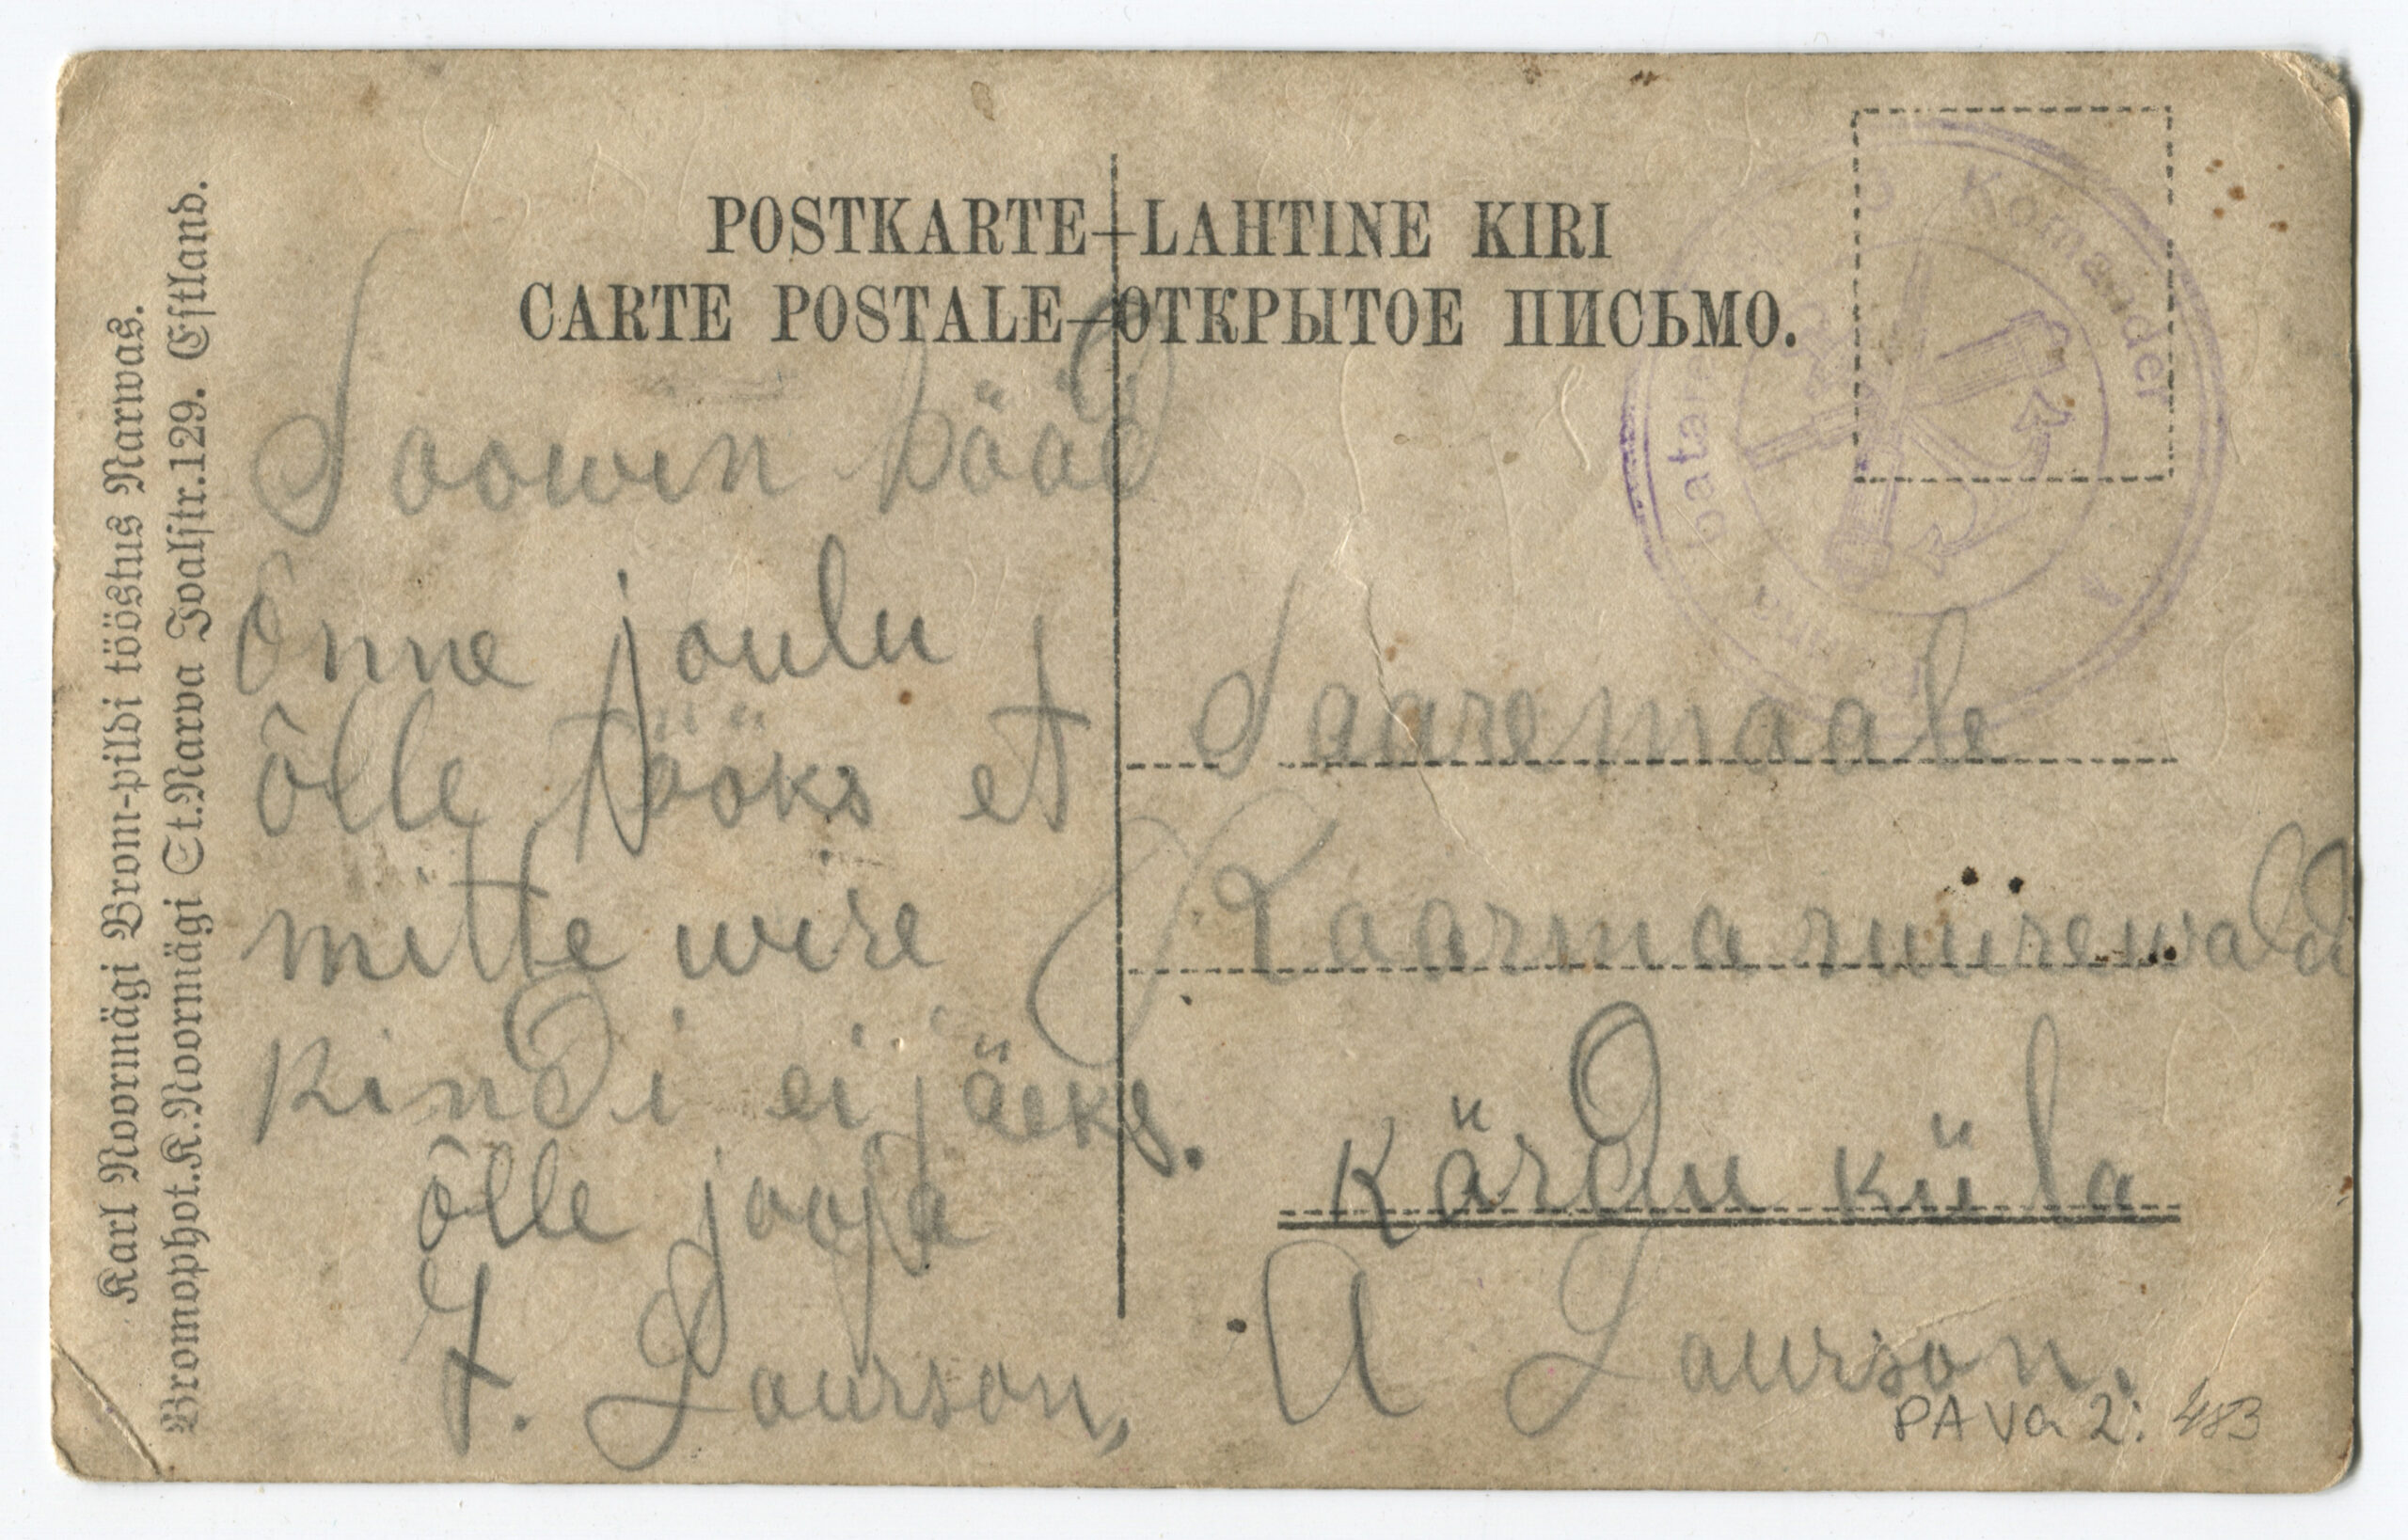 Karl Noormägi Brom-pildi tööstus Narwas.
Bromophot.K.Noormägi St.Narva Joalstr.129. Estland.
POSTKARTE—LAHTINE KIRI
CARTE POSTALE—ОТКРЫТОЕ ПИСЬМО.
Soowin hääd
õnne joulu
õlle tööks et
mitte wire
Kindi ei jäeks.
õlle jooja
J. Laurson,
Komander
patarei
Saaremaale
Kaarma suurewald
Kärdu küla
A Laurson.
PA Va 2: 483